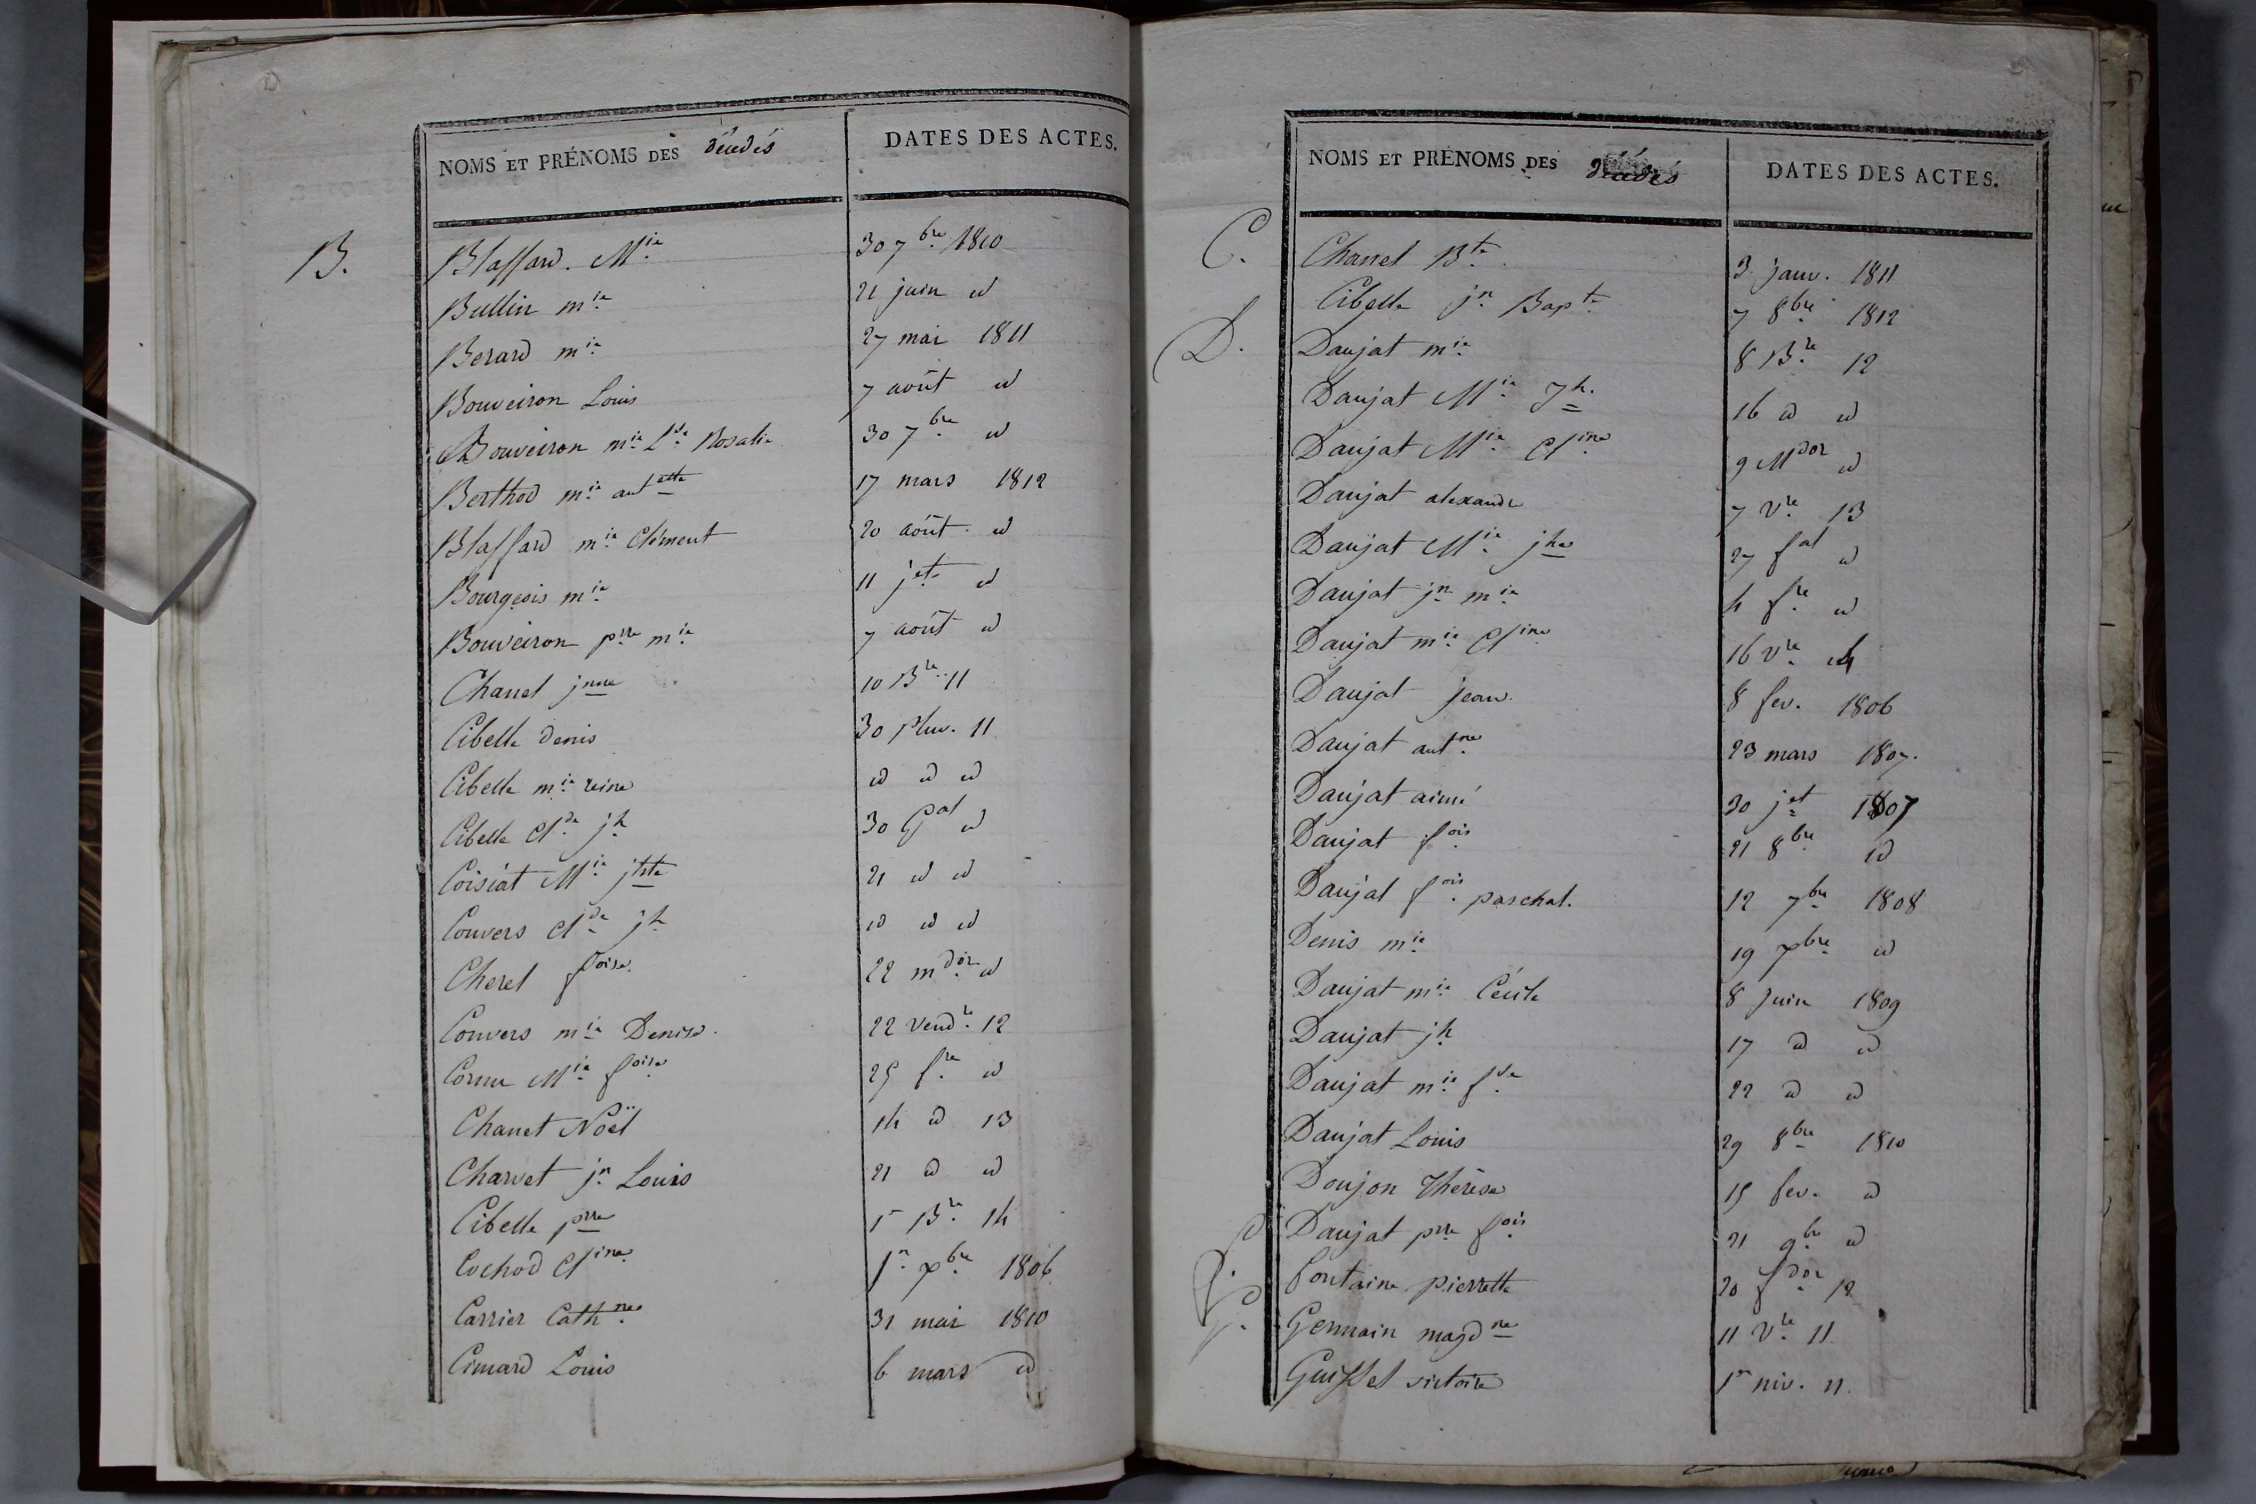 NOMS ET PRÉNOMS DES décedés DATES DES ACTES.
B. Blaffard. Mie 30 7bre 1810
Bullin mie 21 juin id
Berard mie 27 mai 1811
Bouveiron Louis 7 août id
Bouveiron mie Lse Rosalie 30 7bre id
Berthod mie antette 17 mars 1812
Blaffard mie Clément 20 août id
Bourgeois mie 11 jet id
Bouveiron prre mie 7 août id
Chanel jnne 10 Bre 11
Cibelle denis 30 pluv. 11
Cibelle mie reine id id id
Cibelle Clde jh 30 Gal id
Coisiat Mie jhte 21 id id
Convers Clde jh id id id
Cherel foise 22 mdor id
Convers mie Denise 22 Vendre 12
Cornu Mie foise 25 fre id
Chanet Noël 14 id 13
Charvet jn Louis 21 id id
Cibelle prre 1er Bre 14
Cochod Cline 1er Xbre 1806
Carrier Cathne 31 mai 1810
Cimard Louis 6 mars id
NOMS ET PRÉNOMS DES décédés DATES DES ACTES.
C. Chanel Bte 3 janv. 1811
Cibelle jn Bapte 7 8bre 1812
D. Daujat mie 8 Bre 12
Daujat Mie Jh. 16 id id
Daujat Mie Cline 9 Mdor id
Daujat alexandre 7 Vre 13
Daujat Mie jhe 27 fal id
Daujat jn mie 4 fre id
Daujat mie Cline 16 Vre 14
Daujat jean 8 fev. 1806
Daujat antne 23 mars 1807.
Daujat aimé 30 jet 1807
Daujat fois 21 8bre id
Daujat fois paschal. 12 7bre 1808
Denis mie 19 Xbre id
Daujat mie Cécile 8 Juin 1809
Daujat jh 17 id id
Daujat mie fse 22 id id
Daujat Louis 29 8bre 1810
Doujon Thérèse 15 fev. id
D Daujat prre fois 21 9bre id
F. fontaine pierrette 20 fdor 12
G. Germain magdne 11 Vre 11
Guissel victoire 1er niv. 11.